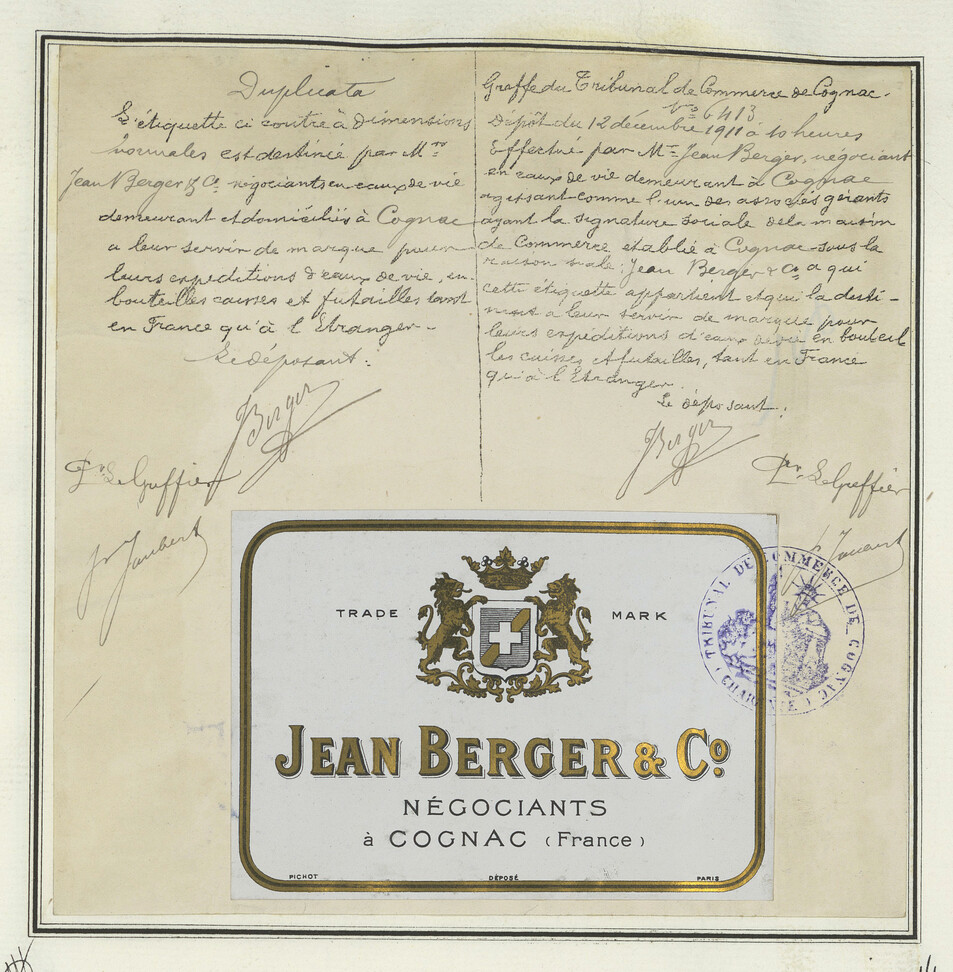 Duplicata
L'étiquette ci contre à dimensions
normales est destinée par Mrs
Jean Berger & Co négociants en eaux de vie
demeurant et domiciliés à Cognac
a leur servir de marque pour
leurs expeditions d'eaux de vie, en
bouteilles caisses et futailles tant
en France qu'à l'Etranger.
Le déposant:
JBerger
Pr Le Greffier
Jr Jaubert
Greffe du Tribunal de Commerce de Cognac.
No 6413
Dépôt du 12 décembre 1911 à 10 heures
Effectué par Mr Jean Berger, négociant
en eaux de vie demeurant à Cognac
agissant comme l'un des associés gérants
ayant la signature sociale de la maison
de Commerce etablie à Cognac sous la
raison sociale: Jean Berger & Co a qui
cette étiquette appartient et qui la desti-
nent a leur servir de marque pour
leurs expéditions d'eaux de vie en bouteil
les caisses et futailles, tant en France
qu'à l'Etranger.
Le déposant:
JBerger
Pr Le Greffier
TRIBUNAL DE COMMERCE DE COGNAC
(CHARENTE)
TRADE MARK
JEAN BERGER & Co.
NÉGOCIANTS
à COGNAC (France)
PICHOT DÉPOSÉ PARIS